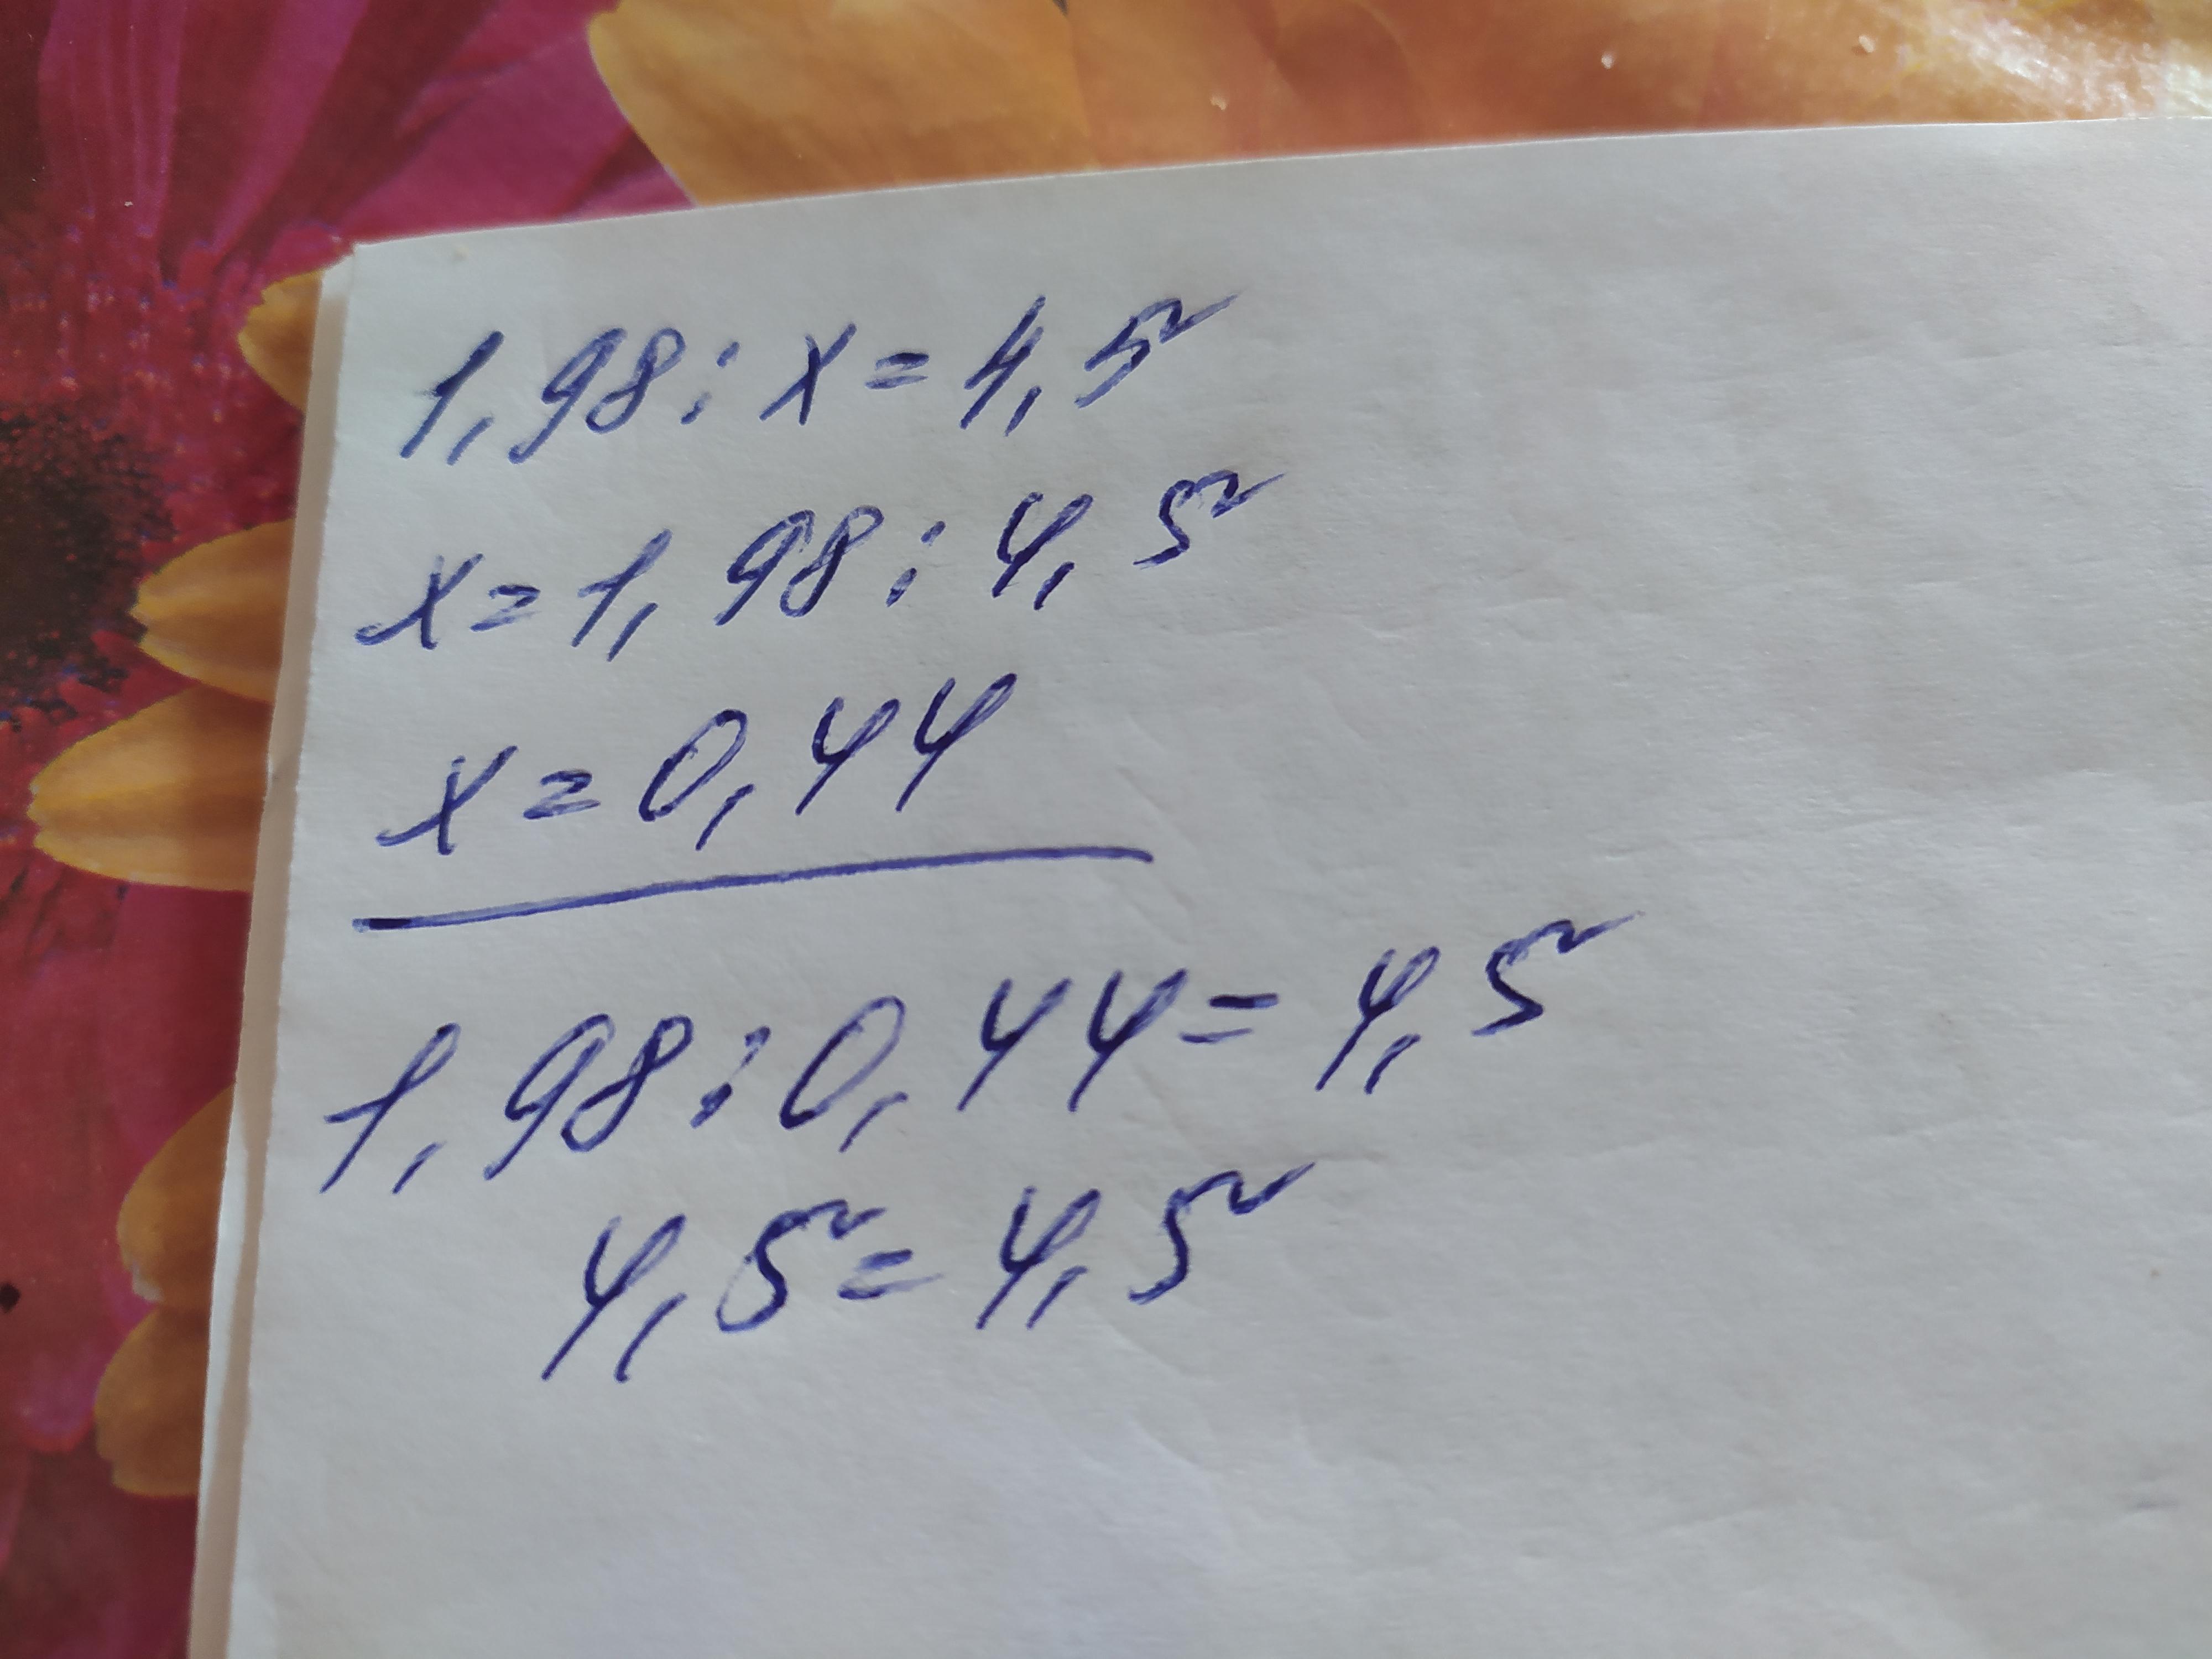 1,98:x=4,5
x=1,98:4,5
x=0,44
1,98:0,44=4,5
4,5=4,5